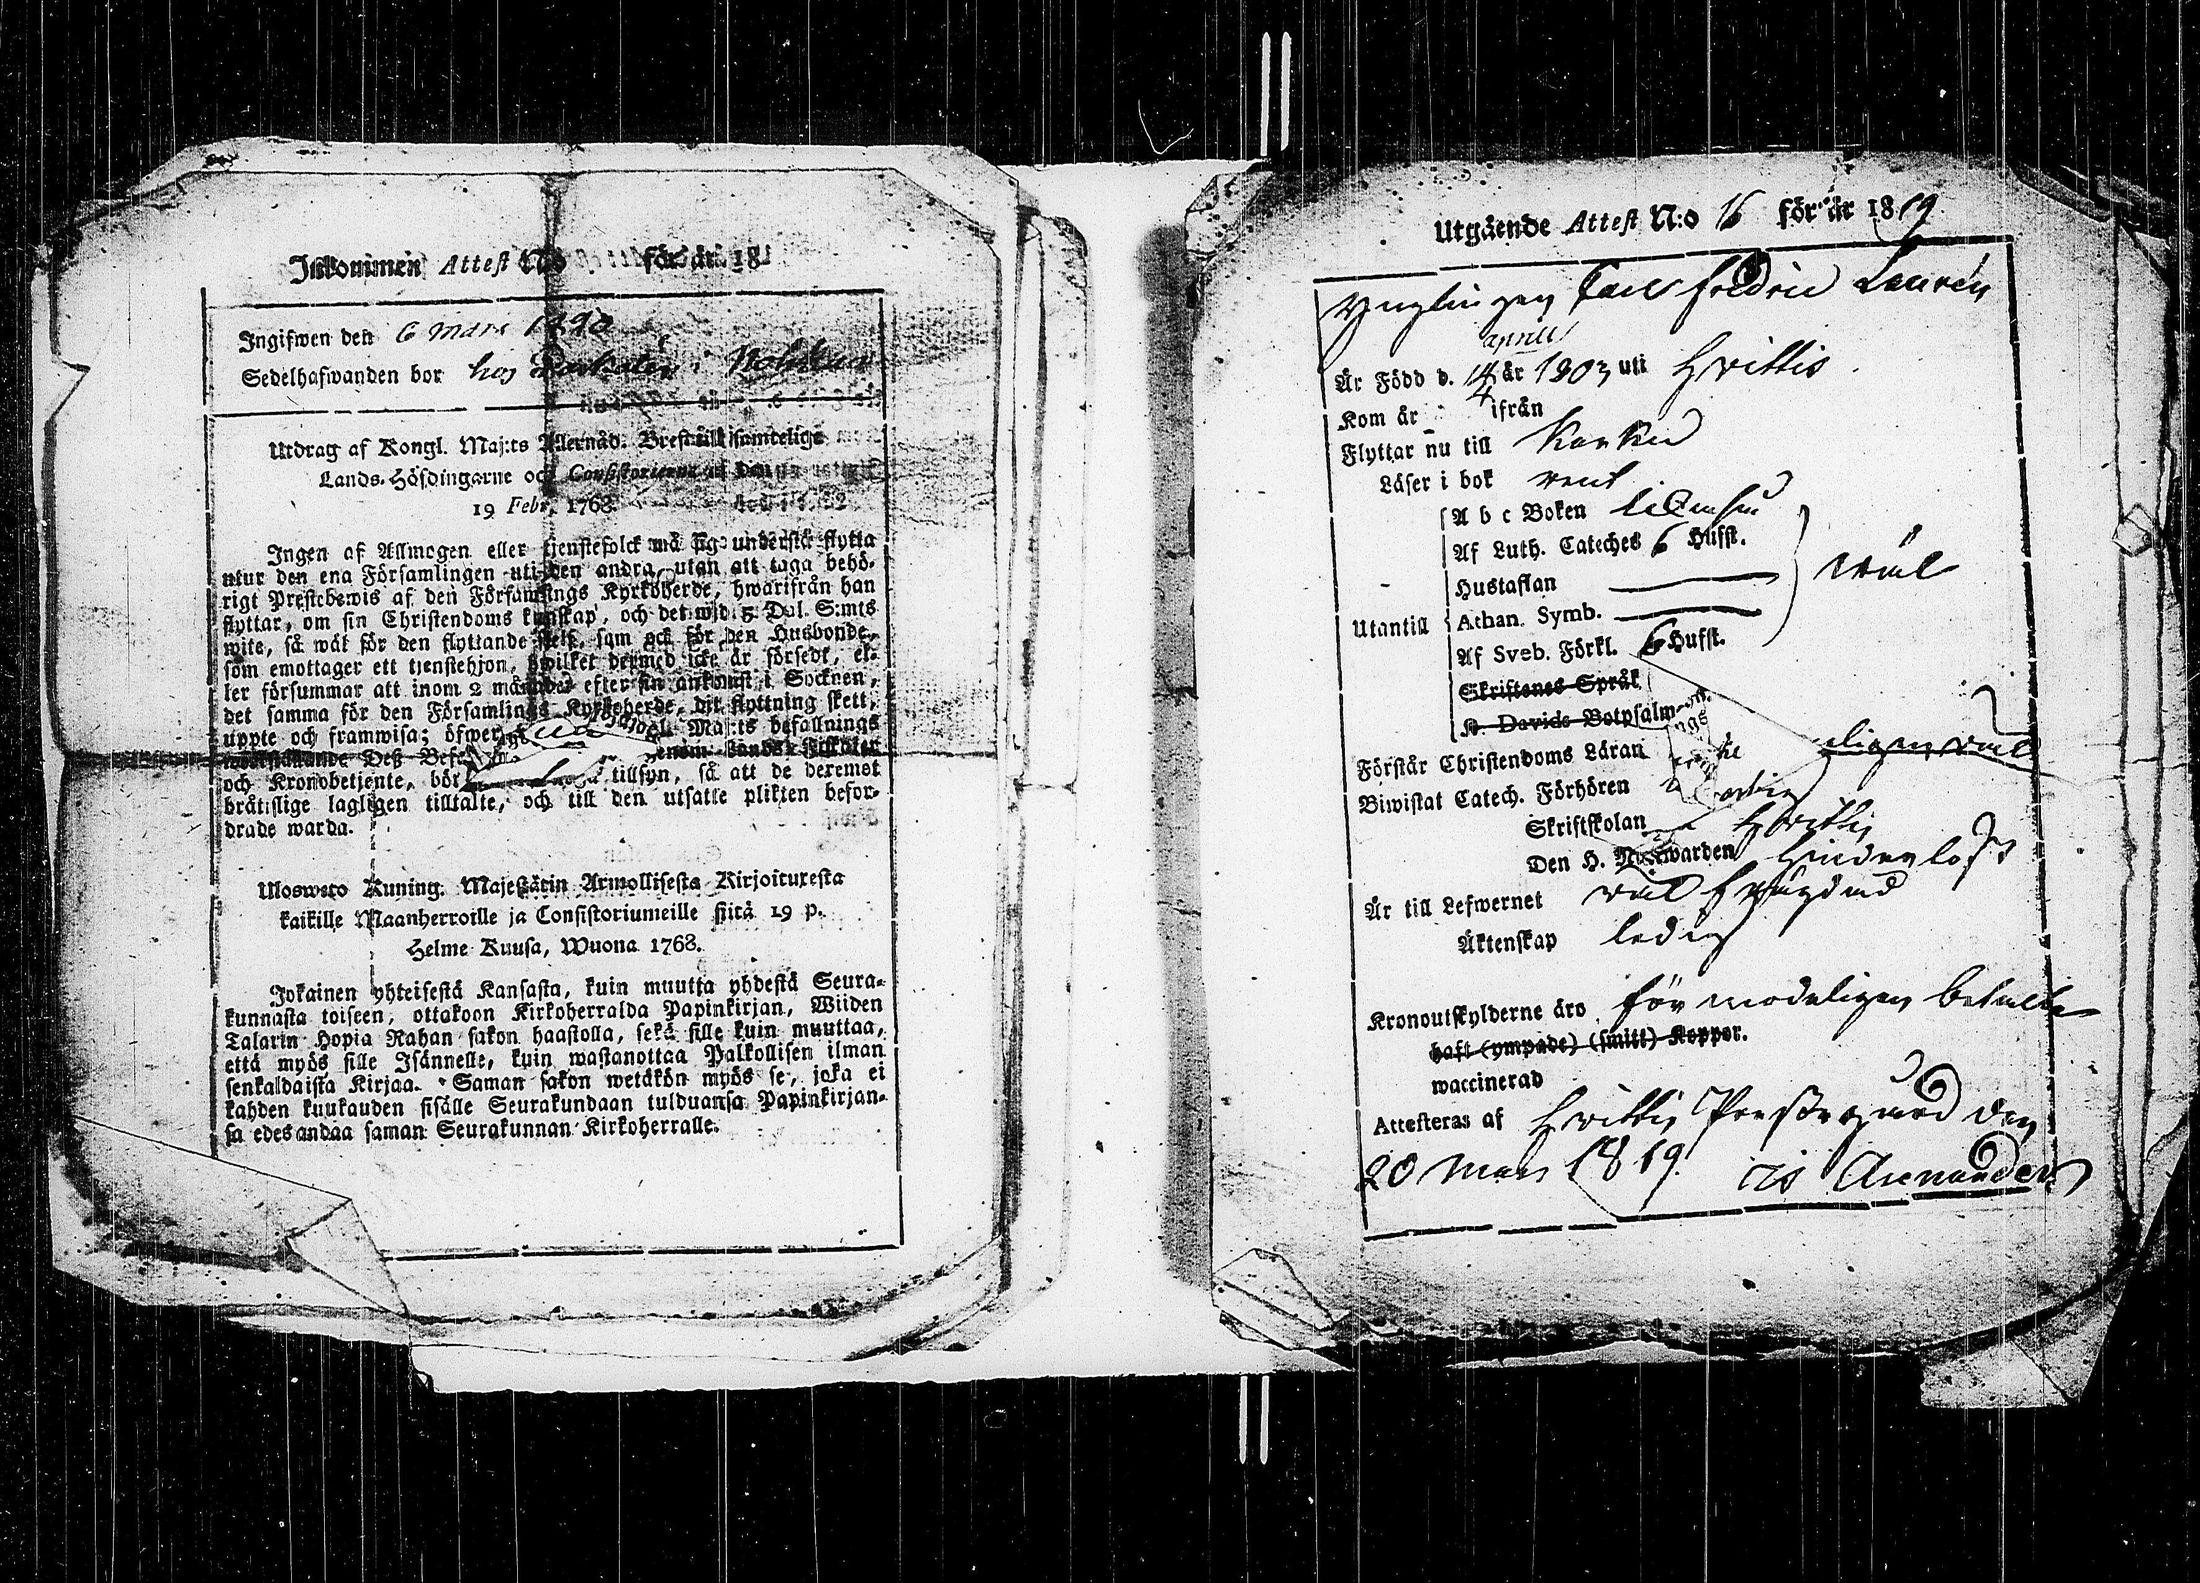 Inkommen Attest N:o för år 18
Ingifwen den 6 Mars 1820
Sedelhafwanden bor hos
Utdrag af Kongl. Maj:ts Allernåd. Bref till samtelige
Lands-Höfdingarne och Consistorierne af den
19 Febr. 1768.
Ingen af Allmogen eller tjenstefolck må sig understå flytta
utur den ena Församlingen uti den andra, utan att taga behö-
rigt Prestebewis af den Församlings Kyrkoherde, hwarifrån han
flyttar, om sin Christendoms kunskap, och det wid 5 Dal. S:mts
wite, så wäl för den flyttande sjelf, som ock för den Husbonde,
som emottager ett tjenstehjon, hwilket dermed icke är försedt, el-
ler försummar att inom 2 månader efter sin ankomst i Socknen,
det samma för den Församlings Kyrkoherde, dit flyttning skett,
uppte och framwisa; öfwer Maj:ts befallnings
werkställande Deß Befa genom Lands Fiskaler
och Kronobetjente, bör tillsyn, så att de deremot
brätslige lagligen tilltalte, och till den utsatte plikten befor-
drade warda.
Uloswето Kuning. Majestätin Armollisesta Kirjoituxesta
kaikille Maanherroille ja Consistoriumeille siitä 19 p.
Helme Kuusa, Wuona 1768.
Jokainen yhteisestä Kansasta, kuin muutta yhdestä Seura-
kunnasta toiseen, ottakoon Kirkoherralda Papinkirjan, Wiiden
Talarin Hopia Rahan sakon haastolla, sekä sille kuin muuttaa,
että myös sille Isännelle, kuin wastanottaa Palkollisen ilman
senkaldaista Kirjaa. Saman sakon wetäkön myös se, joka ei
kahden kuukauden sisälle Seurakundaan tulduansa Papinkirjan-
sa edesandaa saman Seurakunnan Kirkoherralle.
Utgående Attest N:o 16 för år 1819
Ynglingen Carl Fredric Laurén
aprill
Är Född d. 14 år 1803 uti Hvittis
Kom år ifrån
Flyttar nu till Karkku
Läser i bok rent
A b c Boken
Af Luth. Cateches 6 Hufst.
Hustaflan
Utantill Athan. Symb. wäl
Af Sveb. Förkl. 6 Hufst.
Skriftenes Språk
K. Davids Botpsalm
Förstår Christendoms Läran
Biwistat Catech. Förhören
Skriftskolan Hvittis
Den H. Nattwarden Hinderlös
Är till Lefwernet wäl frägdad
Äktenskap ledig
Kronoutskylderne äro förmodeligen betalte
haft (ympade) (smitt) Koppor.
waccinerad
Attesteras af Hvittis Prestegård den
20 Mars 1819.